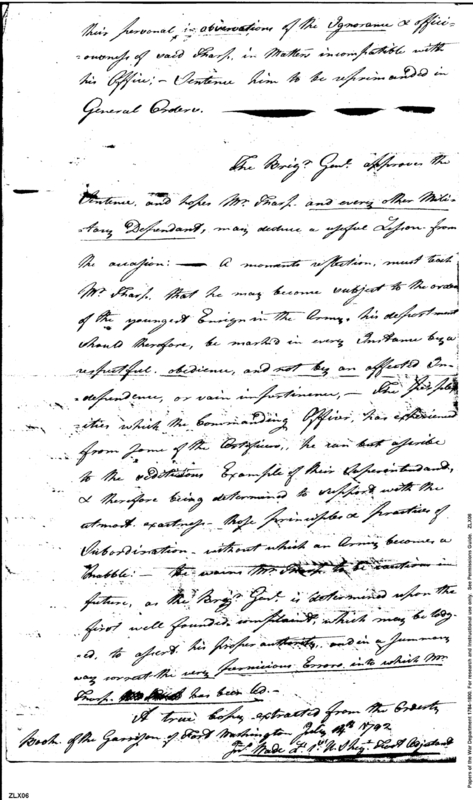 their personal observations of the Ignorance & offici-
-ousness of said Sharp, in Matters incompatible with
his Office; – Sentence him to be reprimanded in
General Orders.
The Brigr. Genl. approves the
Sentence, and hopes Mr. Sharp, and every other Mili-
-tary Defendant, may deduce a useful Lesson from
the occasion: — A moments reflection, must teach
Mr. Sharp, that he may become subject to the orders
of the youngest Ensign in the Army, his deportment
should therefore, be marked in every Instance by a
respectful obedience, and not by an affected In-
-dependence, or vain impertinence, – The
-ities which the Commanding Officer, has experienced
from some of the Artificers, he can but ascribe
to the seditious Example of their Superintendant,
& therefore being determined to support with the
utmost exactness those principles & practices of
Subordination without which an Army becomes a
Rabble: – He warns Mr. Sharp to be cautious in
future, as the Brigr. Genl. is determined upon the
first well founded complaint, which may be lodg-
-ed, to assert his proper authority, and in a summary
way correct the very pernicious Errors into which Mr.
Sharp has been led. –
A true Copy extracted from the Orderly
Book of the Garrison of Fort Washington July 1792
Jno. Wade Lt. 1st. U.S. Regt. Fort Adjutant
ZLX06
Papers of the War Department 1784-1800. For research and instructional use only. See Permissions Guide. ZLX06